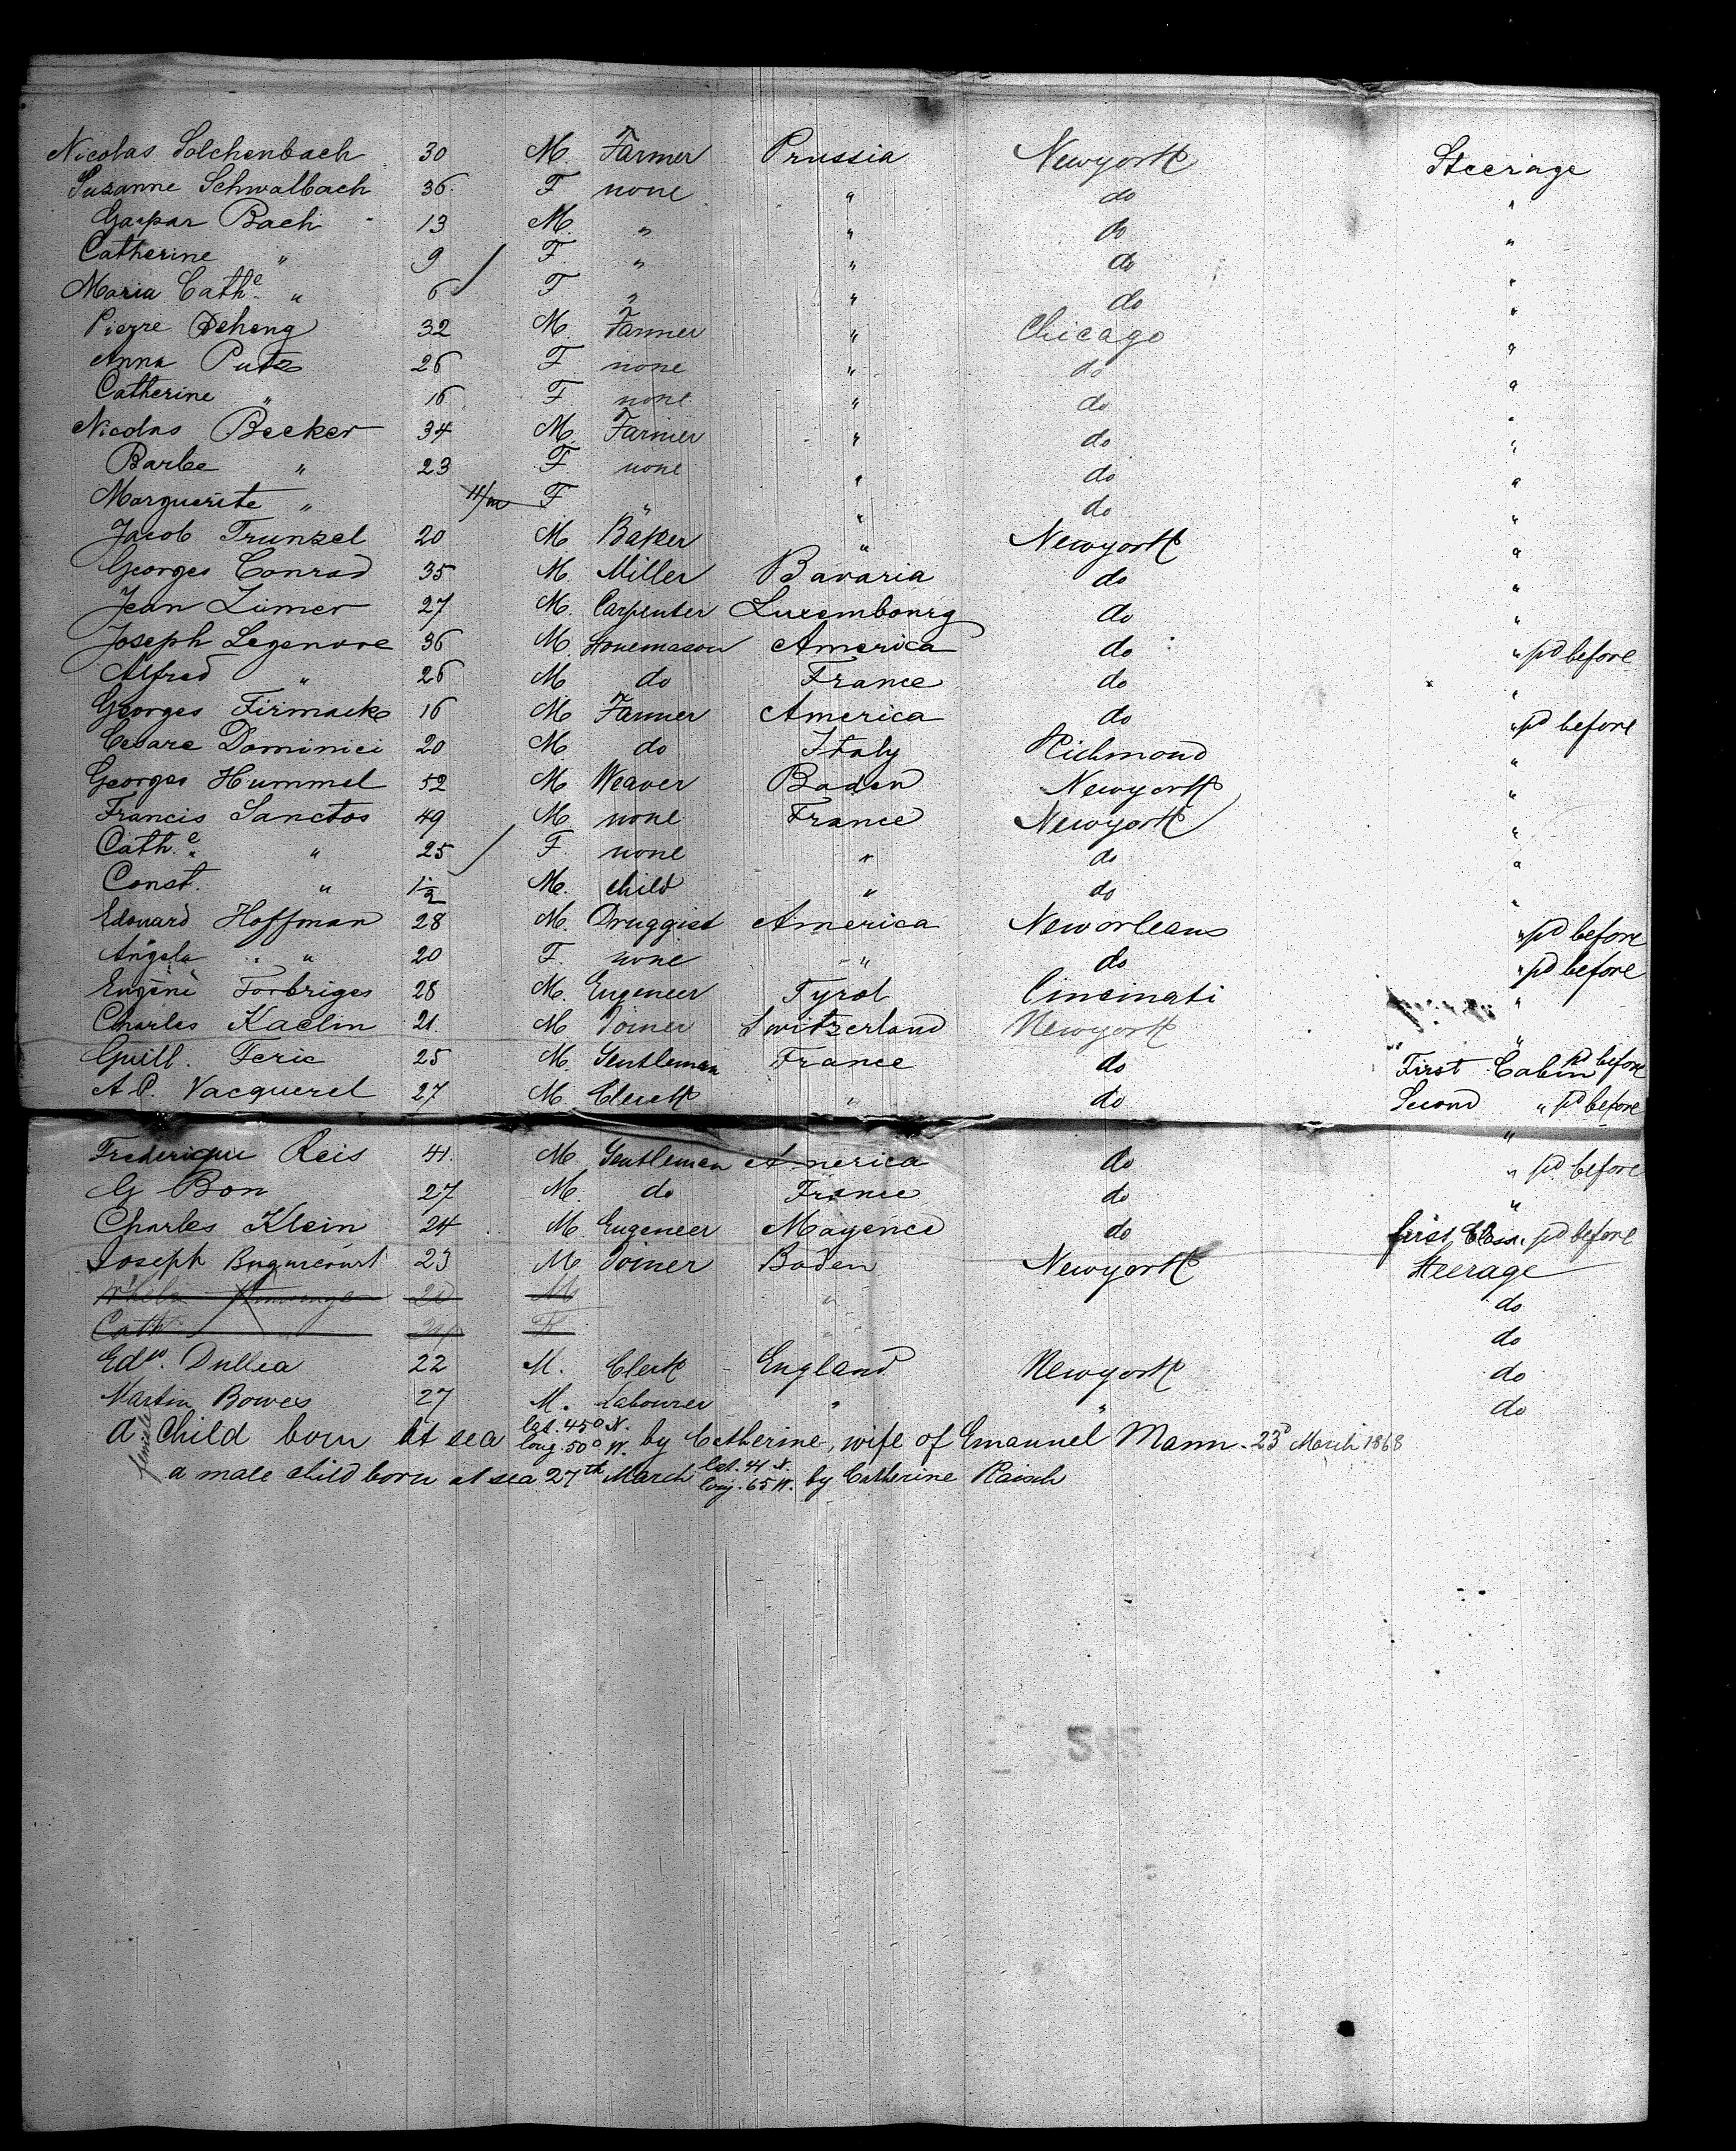 Nicolas Solchenbach 30 M. Farmer Prussia Newyork Steerage
Suzanne Schwalbach 36 F none " do "
Gaspar Bach 13 M. " " do "
Catherine " 9 F " " do "
Maria Cathe " 6 F " " do "
Pierre Deheng 32 M. Farmer " Chicago "
Anna Putz 26 F none " do "
Catherine " 16 F none " do "
Nicolas Becker 34 M. Farmer " do "
Barbe " 23 F none " do "
Marguerite " 11/m F " " do "
Jacob Trunzel 20 M Baker " Newyork "
Georges Conrad 35 M. Miller Bavaria do "
Jean Zimer 27 M. Carpenter Luxembourg do "
Joseph Legenore 36 M. Stonemason America do " pd before
Alfred " 26 M do France do "
Georges Firmack 16 M Farmer America do " pd before
Cesare Dominici 20 M. do Italy Richmond "
Georges Hummel 52 M Weaver Baden Newyork "
Francis Sanctos 49 M none France Newyork "
Cathe " 25 F. none " do "
Const. " 1 1/2 M. child " do "
Edouard Hoffman 28 M. Druggist America Neworleans " pd before
Angela " 20 F. none " do " pd before
Eugène Forbriges 28 M. Engeneer Tyrol Cincinati "
Charles Kaelin 21. M Joiner Switzerland Newyork "
Guill. Feric 25 M. Gentleman France do First Cabin pd before
A.P. Vacquerel 27 M. Clerk " do Second " pd before
"
Frederique Reis 41. M. Gentleman America do " pd before
G Bon 27 M. do France do "
Charles Klein 24 M. Engeneer Mayence do first Class pd before
Joseph 23 M Joiner Baden Newyork Steerage
20 M " do
Cath F " do
Edw. Dullea 22 M. Clerk England Newyork do
Martin Bowes 27 M. Labourer " " do
A female Child born at sea lat. 45° N. long. 50° W. by Catherine, wife of Emanuel Mann. 23d March 1868
a male child born at sea 27th March lat. 41 N. long. 65 W. by Catherine Raisch
545